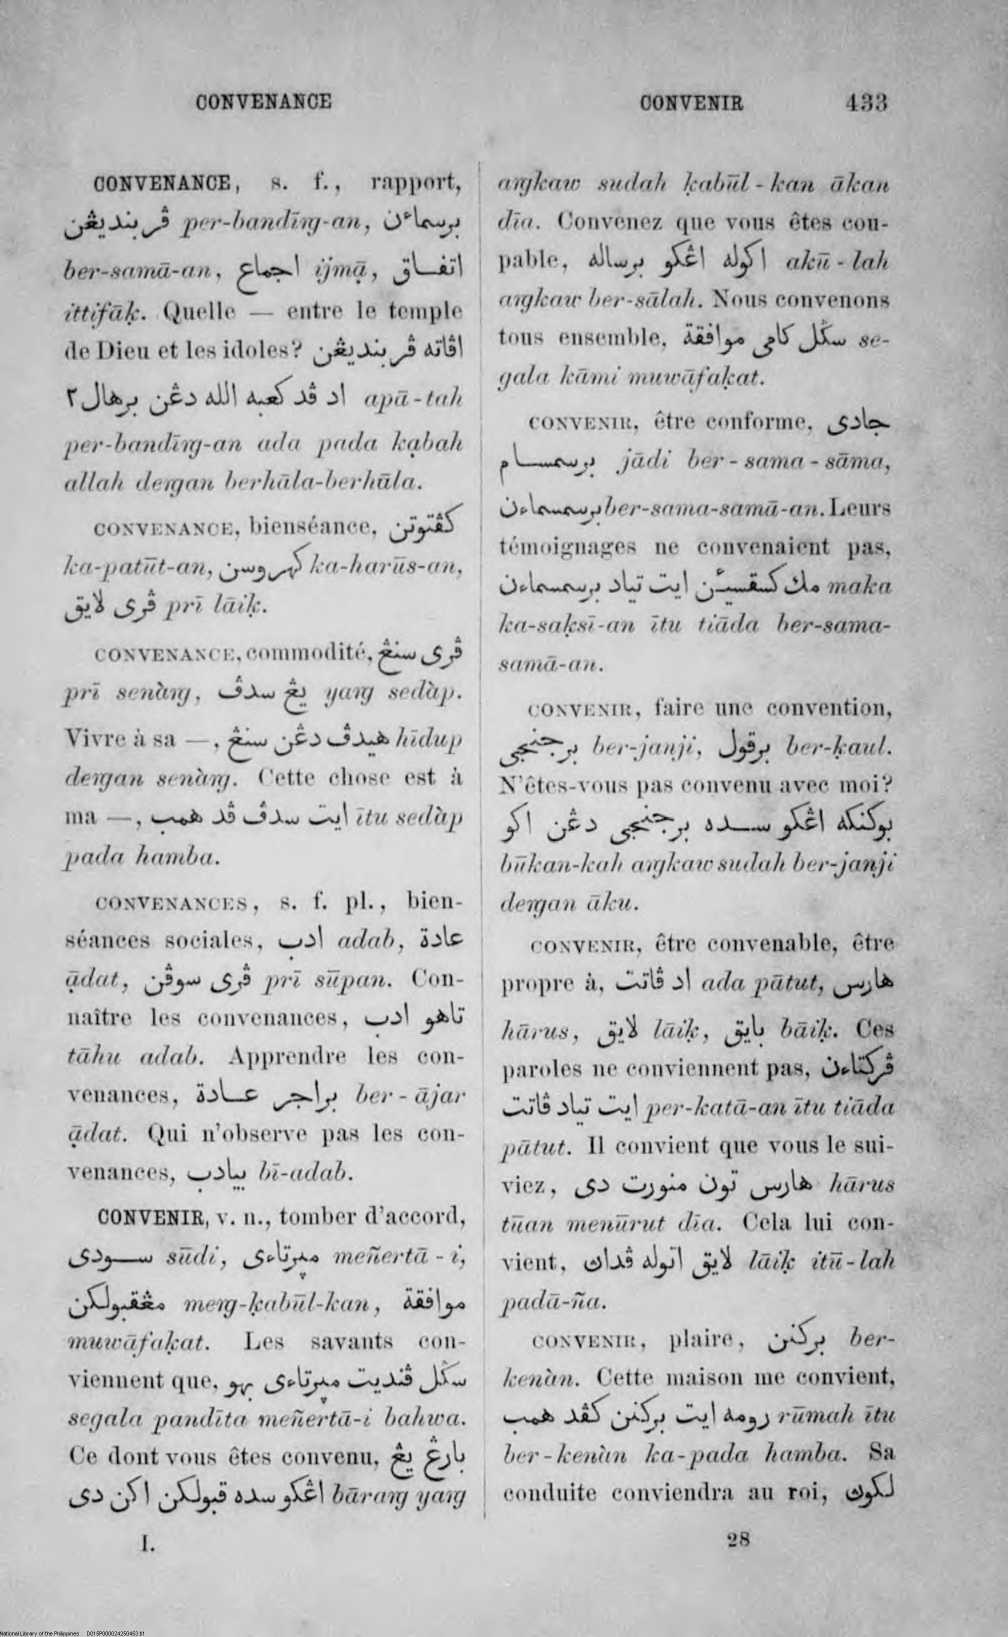 CONVENANCE
CONVENIR 433
CONVENANCE, s. f., rapport,
ڤربنديڠن per-bandīṅg-an, برسماءن
ber-samā-an, اجماع ijmạ̄, اتفاق
ittifāḳ. Quelle — entre le temple
de Dieu et les idoles? اڤاته ڤربنديڠن
اد ڤد كعبه الله دڠن برهال٢ apā-tah
per-bandīṅg-an ada pada kạbah
allah deṅgan berhāla-berhāla.
CONVENANCE, bienséance, كڤتوتن
ka-patūt-an, كهروسن ka-harūs-an,
ڤرى لايق prī lāiḳ.
CONVENANCE, commodité, ڤرى سنڠ
prī senàṅg, يڠ سدڤ yaṅg sedàp.
Vivre à sa —, هيدڤ دڠن سنڠ hīdup
deṅgan senàṅg. Cette chose est à
ma —, ايت سدڤ ڤد همب ītu sedàp
pada hamba.
CONVENANCES, s. f. pl., bien-
séances sociales, ادب adab, عادة
ạ̄dat, ڤرى سوڤن prī sūpan. Con-
naître les convenances, تاهو ادب
tāhu adab. Apprendre les con-
venances, براجر عادة ber-ājar
ạ̄dat. Qui n'observe pas les con-
venances, بيادب bī-adab.
CONVENIR, v. n., tomber d'accord,
سودى sūdi, مپرتاءى meñertā-i,
مڠقبولكن meṅg-ḳabūl-kan, موافقة
muwāfaḳat. Les savants con-
viennent que, سكل ڤنديت مپرتاءى بهو
segala pandīta meñertā-i bahwa.
Ce dont vous êtes convenu, بارڠ يڠ
اڠكو سده قبولكن اكن دى bāraṅg yaṅg
aṅgkaw sudah ḳabūl-kan ākan
dīa. Convenez que vous êtes cou-
pable, اكوله اڠكو برساله akū-lah
aṅgkaw ber-sālah. Nous convenons
tous ensemble, سكل كامى موافقة se-
gala kāmi muwāfaḳat.
CONVENIR, être conforme, جادى
برسمسام jādi ber-sama-sāma,
برسمسماءن ber-sama-samā-an. Leurs
témoignages ne convenaient pas,
مك كسقسيئن ايت تياد برسمسماءن maka
ka-saḳsī-an ītu tiāda ber-sama-
samā-an.
CONVENIR, faire une convention,
برجنجى ber-janji, برقول ber-ḳaul.
N'êtes-vous pas convenu avec moi?
بوكنكه اڠكو سده برجنجى دڠن اكو
būkan-kah aṅgkaw sudah ber-janji
deṅgan āku.
CONVENIR, être convenable, être
propre à, اد ڤاتت ada pātut, هارس
hārus, لايق lāiḳ, بايق bāiḳ. Ces
paroles ne conviennent pas, ڤركتاءن
ايت تياد ڤاتت per-katā-an ītu tiāda
pātut. Il convient que vous le sui-
viez, هارس تون منورت دى hārus
tūan menūrut dīa. Cela lui con-
vient, لايق اتوله ڤداڽ lāiḳ itū-lah
padā-ña.
CONVENIR, plaire, بركنن ber-
kenàn. Cette maison me convient,
رومه ايت بركنن كڤد همب rūmah ītu
ber-kenàn ka-pada hamba. Sa
conduite conviendra au roi, لكوڽ
I.
28
National Library of the Philippines